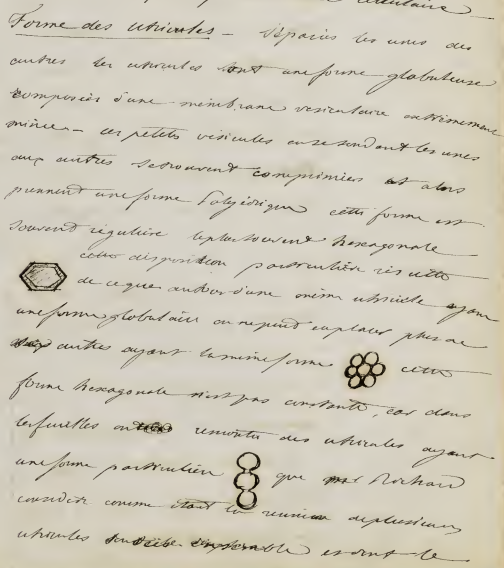 Forme des utricules – Séparés les unes des
autres les utricules ont une forme globuleuse
composées d'une membrane vésiculaire extrêmement
mince – ces petits vésicules en se soudant les unes
aux autres se trouvent comprimées et alors
prennent une forme Polyédrique cette forme est
souvent régulière le plus souvent hexagonale
cette disposition particulière résulte
de ce que autour d'une même utricule ayant
une forme globulaire on ne peut en placer plus de
autres ayant la même forme cette
forme hexagonale n'est pas constante, car dans
les feuilles on rencontre des utricules ayant
une forme particulière que Richard
considère comme étant la réunion de plusieurs
utricules ensemble et dont le